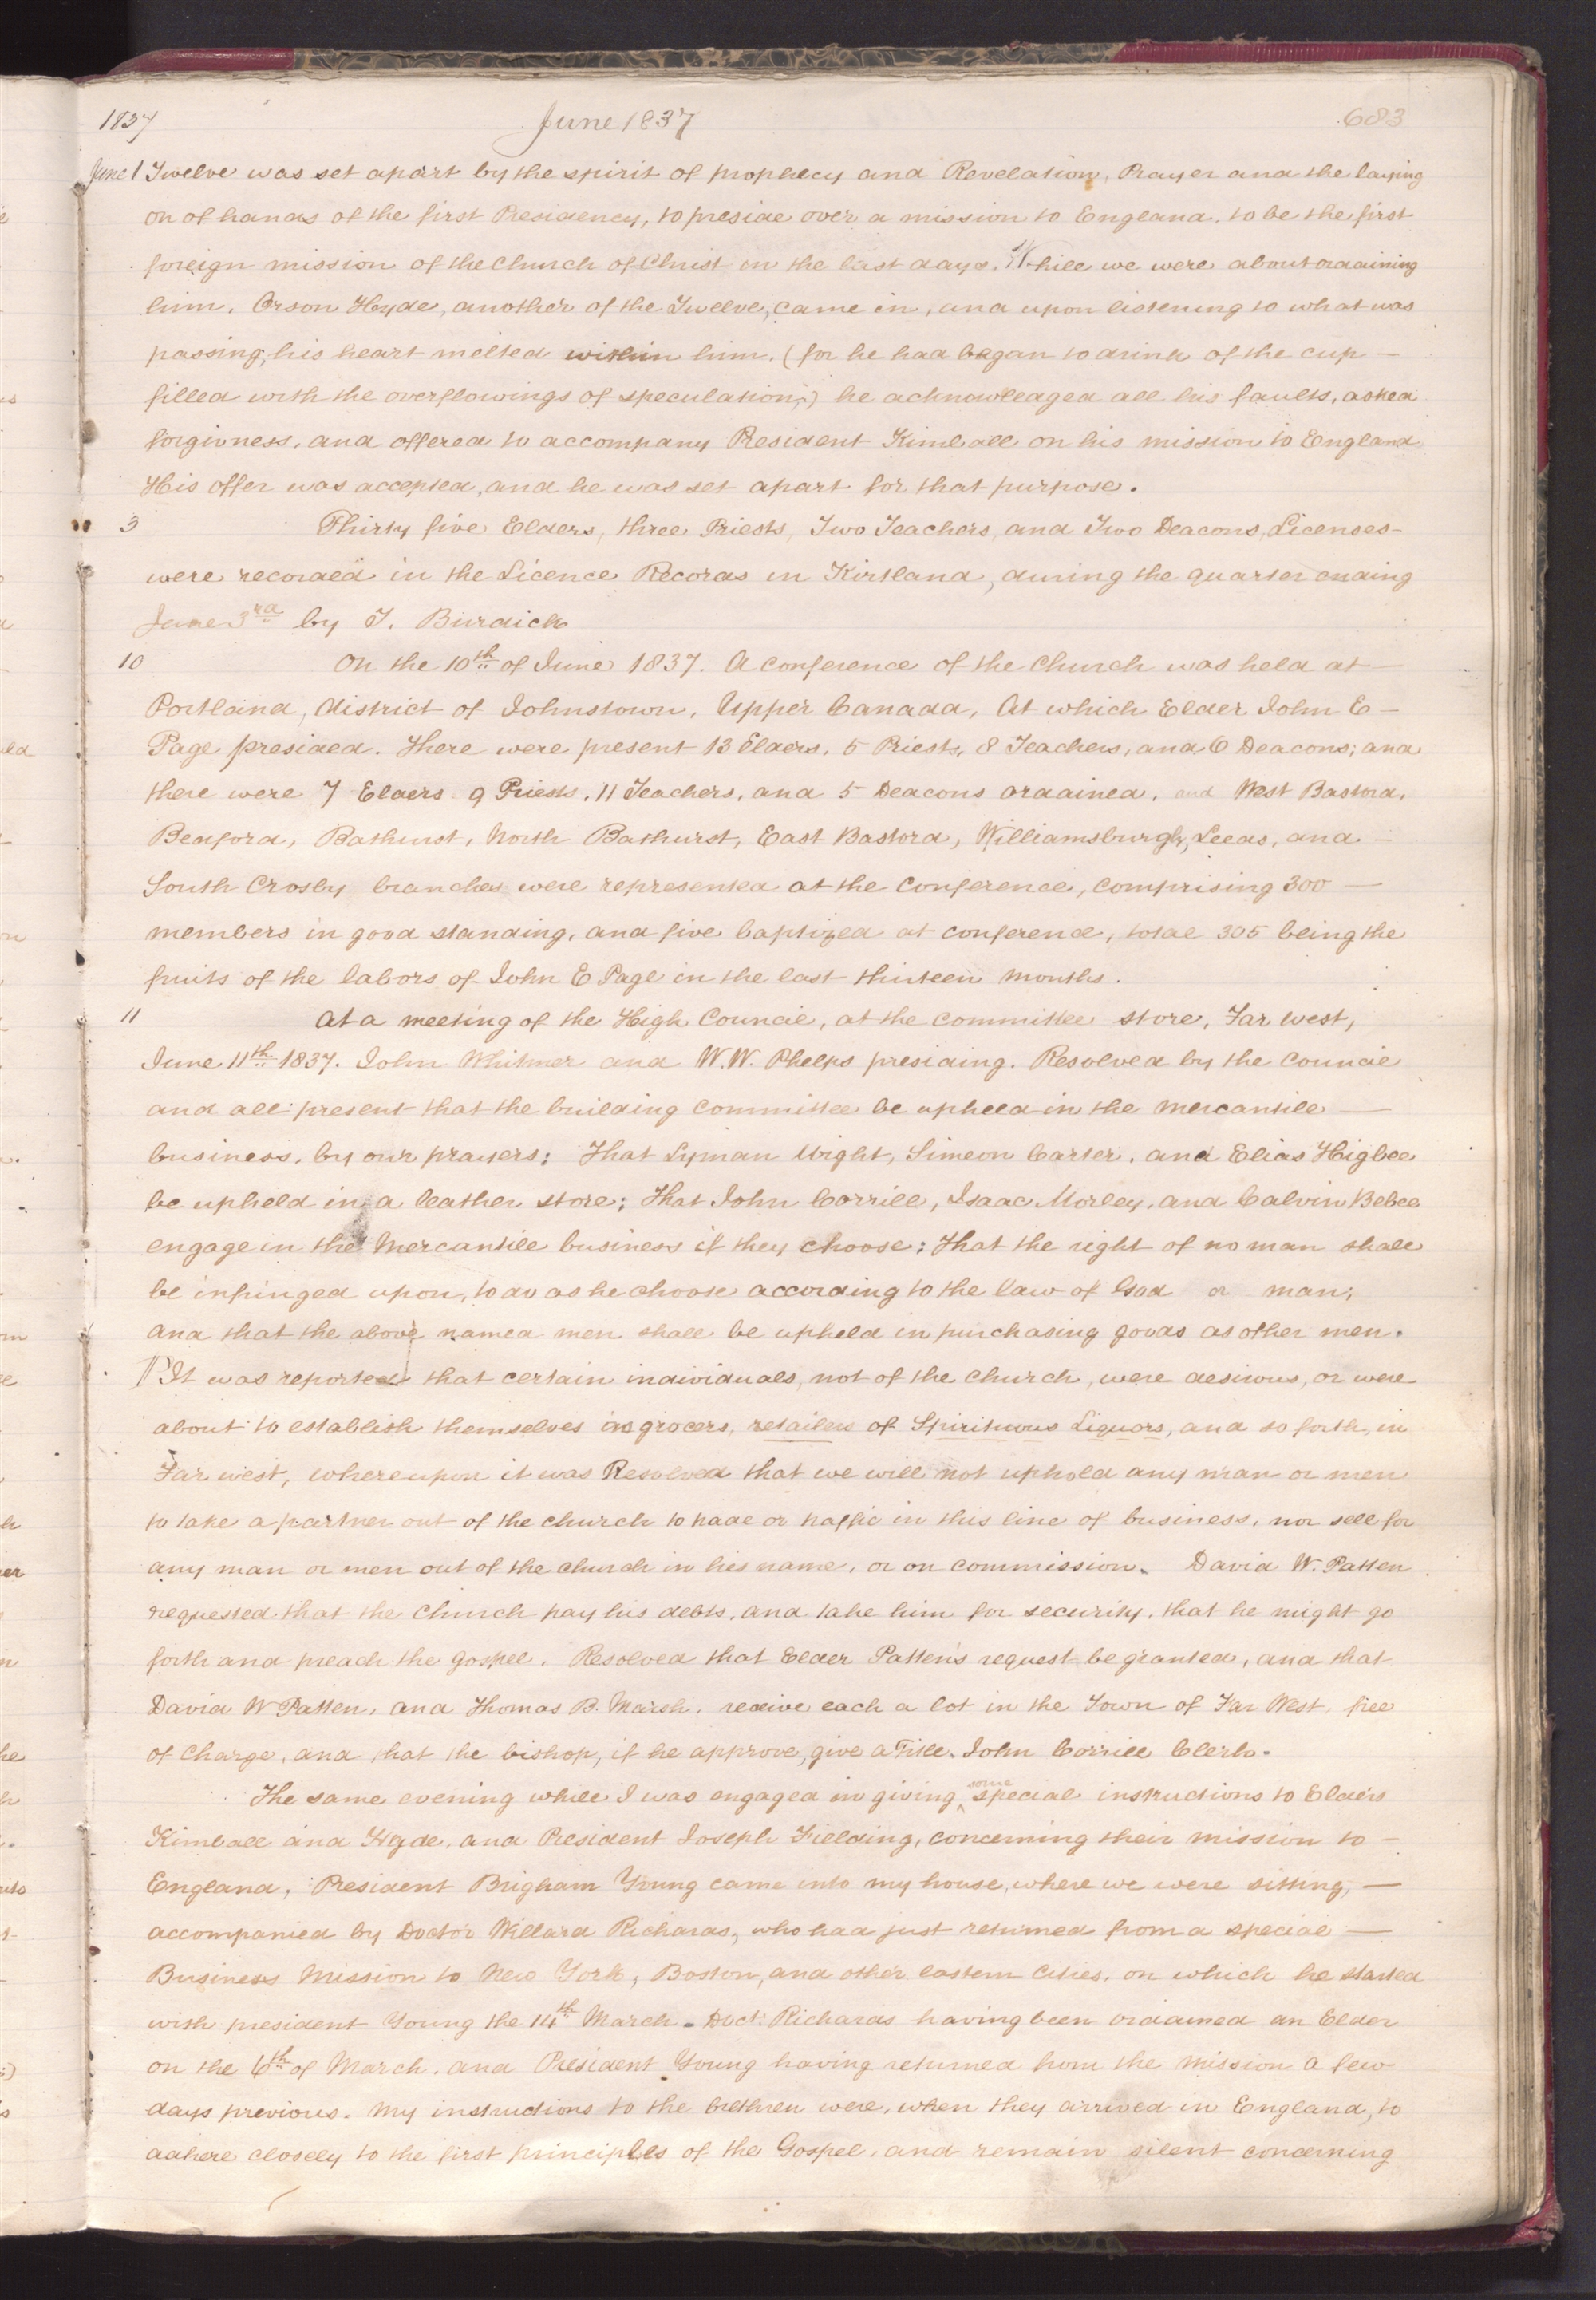 1837 June 1837 683
June 1 Twelve was set apart by the spirit of prophecy and Revelation, Prayer and the laying
on of hands of the first Presidency, to preside over a mission to England, to be the first
foreign mission of the Church of Christ in the last days. While we were about ordaining
him, Orson Hyde, another of the Twelve, came in, and upon listening to what was
passing, his heart melted within him, (for he had began to drink of the cup —
filled with the overflowings of speculation;) he acknowledged all his faults, asked
forgivness, and offered to accompany President Kimball on his mission to England
His offer was accepted, and he was set apart for that purpose.
3 Thirty five Elders, three Priests, Two Teachers, and Two Deacons, Licenses-
were recorded in the Licence Records in Kirtland, during the quarter ending
June 3rd by T. Burdick
10 On the 10th of June 1837. A conference of the Church was held at —
Portland, district of Johnstown, Upper Canada, At which Elder John E —
Page presided. There were present 13 Elders, 5 Priests, 8 Teachers, and 6 Deacons; and
there were 7 Elders 9 Priests, 11 Teachers, and 5 Deacons ordained, and West Bastord,
Bedford, Bathurst, North Bathurst, East Bastord, Williamsburgh, Leeds, and —
South Crosby branches were represented at the conference, comprising 300 —
members in good standing, and five baptized at conference, total 305 being the
fruits of the labors of John E Page in the last thirteen months.
11 At a meeting of the High Council, at the committee store, Far west,
June 11th 1837. John Whitmer and W. W. Phelps presiding. Resolved by the Council
and all present that the building committee be upheld in the mercantile —
business, by our prayers; That Lyman Wight, Simeon Carter, and Elias Higbee
be upheld in a leather store; That John Corrill, Isaac Morley, and Calvin Bebee
engage in the Mercantile business if they choose; That the right of no man shall
be infringed upon, to do as he choose according to the law of God or man;
and that the above named men shall be upheld in purchasing goods as other men.
¶ It was reported that certain individuals, not of the church, were desirous, or were
about to establish themselves as grocers, retailers of Spirituous Liquors, and so forth, in
Far west, whereupon it was Resolved that we will not uphold any man or men
to take a partner out of the church to trade or traffic in this line of business, nor sell for
any man or men out of the church in his name, or on commission. David W. Patten
requested that the Church pay his debts, and take him for security, that he might go
forth and preach the gospel. Resolved that Elder Patten's request be granted, and that
David W Patten, and Thomas B. Marsh, receive each a lot in the Town of Far West, free
of Charge, and that the bishop, if he approve, give a Title. John Corrill Clerk.
The same evening while I was engaged in giving some special instructions to Elders
Kimball and Hyde, and President Joseph Fielding, concerning their mission to —
England, President Brigham Young came into my house, where we were sitting, —
accompanied by Doctor Willard Richards, who had just returned from a special —
Business Mission to New York, Boston, and other eastern Cities, on which he started
with president Young the 14th March. Doct. Richards having been ordained an Elder
on the 6th of March, and President Young having returned from the mission a few
days previous. My instructions to the brethren were, when they arrived in England, to
adhere closely to the first principles of the Gospel, and remain silent concerning